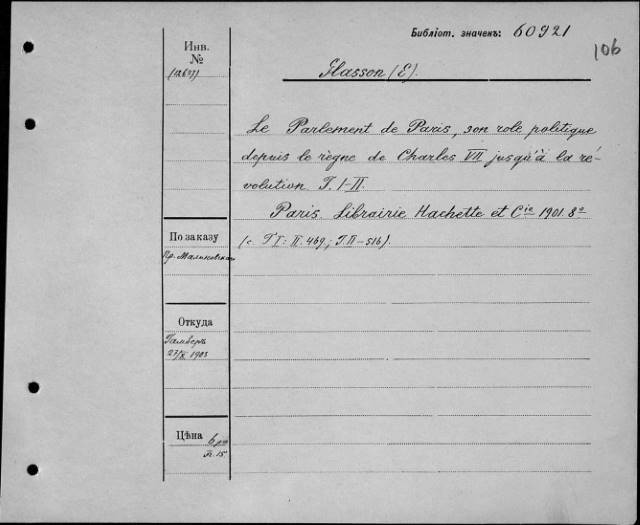 Библіот. значенъ: 60921
106
Инв.
№
(12637)
Glasson (E).
Le Parlement de Paris, son rolé politique
depuis le règne de Charles VII jusqu'à la ré-
volution T. I-II.
Paris. Librairie Hachette et Cie 1901. 8º
(c. T I: II. 469; T. II - 516).
По заказу
Пр. Малиновскаго
Откуда
Гамберъ
27/X 1903
Цѣна